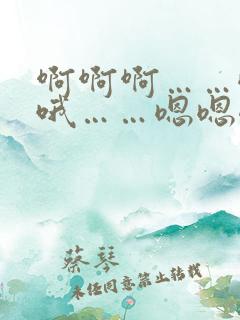 啊啊啊……
哦……嗯嗯
蔡琴
未经同意禁止转载